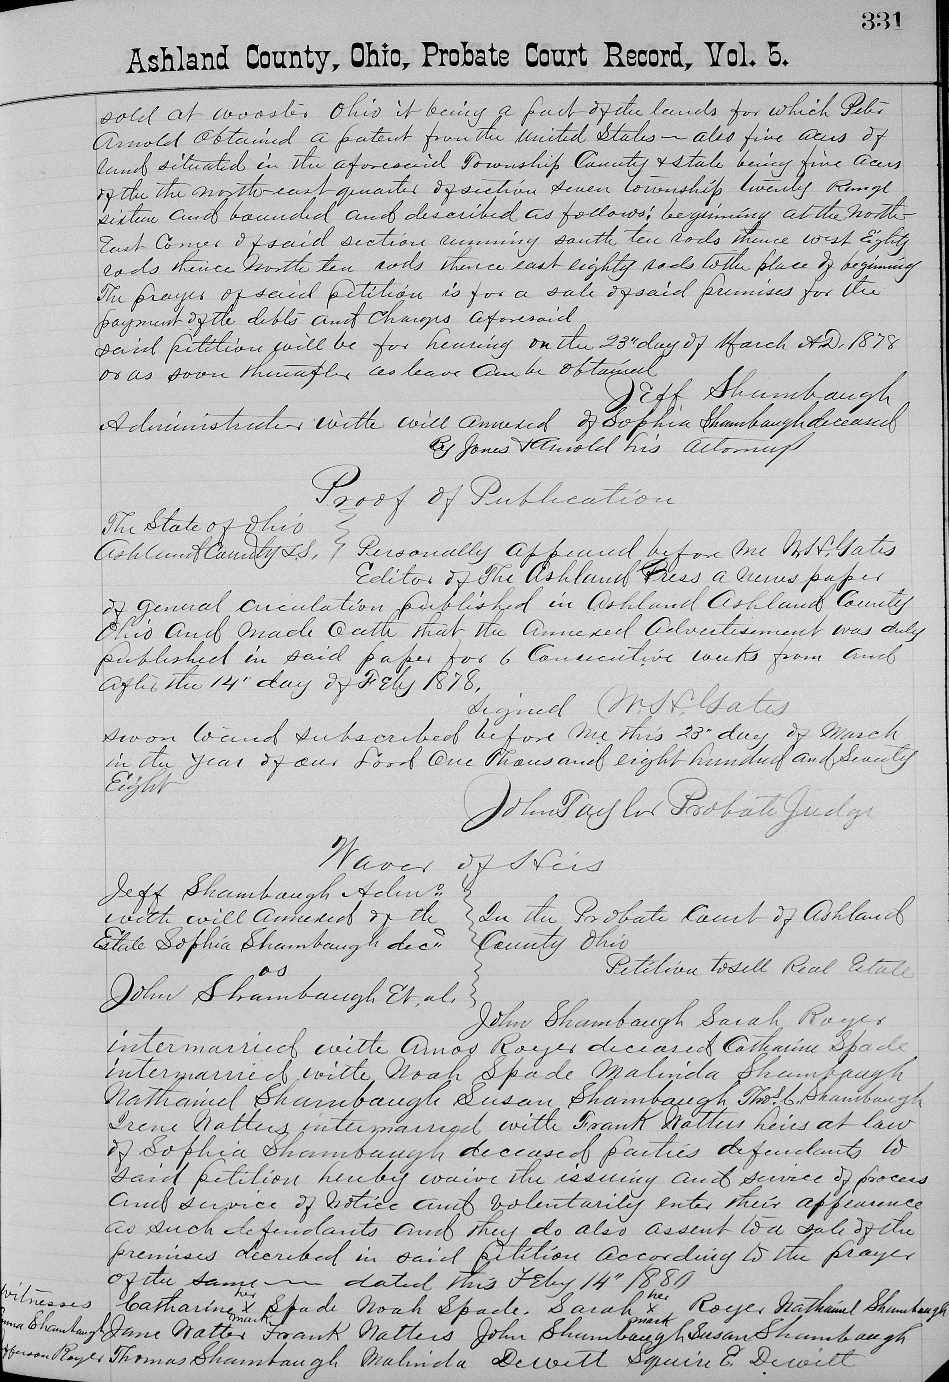 331
Ashland County, Ohio, Probate Court Record, Vol. 5.
sold at wooster Ohio it being a part of the lands for which Peter
Arnold Obtained a patent from the United States — also five acers of
land situated in the aforesaid Township County & state being five Acers
of the the North-east quarter of section seven township twenty Range
sixteen and bounded and described as follows: beginning at the North-
East Corner of said section running south ten rods thence west Eighty
rods thence North ten rods thence east eighty rods to the place of beginning
The prayer of said petition is for a sale of said premises for the
payment of the debts and Charges aforesaid
said petition will be for hearing on the 23" day of March A.D. 1878
or as soon thereafter as leave can be obtained
Jeff Shambaugh
Administrator with will annexed of Sophia Shambaugh deceased
By Jones & Arnold his attorneys
Proof of Publication
The State of Ohio
Ashland County S.S. Personally appeared before me W.H. Gates
Editor of The Ashland Press a news paper
of general circulation published in Ashland Ashland County
Ohio and made Oath that the annexed Advertisement was duly
published in said paper for 6 Consecutive weeks from and
after the 14" day of Feby 1878.
signed W.H. Gates
sworn to and subscribed before me this 23" day of March
in the year of our Lord One Thousand eight hundred and Seventy
Eight
John Taylor Probate Judge
Waver of Heirs
Jeff Shambaugh Admr
with will annexed of the
Estate Sophia Shambaugh decd
In the Probate Court of Ashland
County Ohio
Petition to sell Real Estate
vs
John Shambaugh Et. al.
John Shambaugh Sarah Royer
intermarried with Amos Royer deceased Catharine Spade
intermarried with Noah Spade Malinda Shambaugh
Nathaniel Shambaugh Susan Shambaugh Thos. C. Shambaugh
Irene Watters intermarried with Frank Watters heirs at law
of Sophia Shambaugh deceased parties defendants to
said petition hereby waive the issuing and service of process
and service of Notice and voluntarily enter their appearence
as such defendants and they do also assent to a sale of the
premises decribed in said petition according to the prayer
of the same — dated this Feby 14" 1880
witnesses Catharine her x mark Spade Noah Spade. Sarah her x mark Royer Nathaniel Shambaugh
Shambaugh Jane Watter Frank Watters John Shambaugh Susan Shambaugh
Royer Thomas Shambaugh Malinda Dewitt Squire E. Dewitt